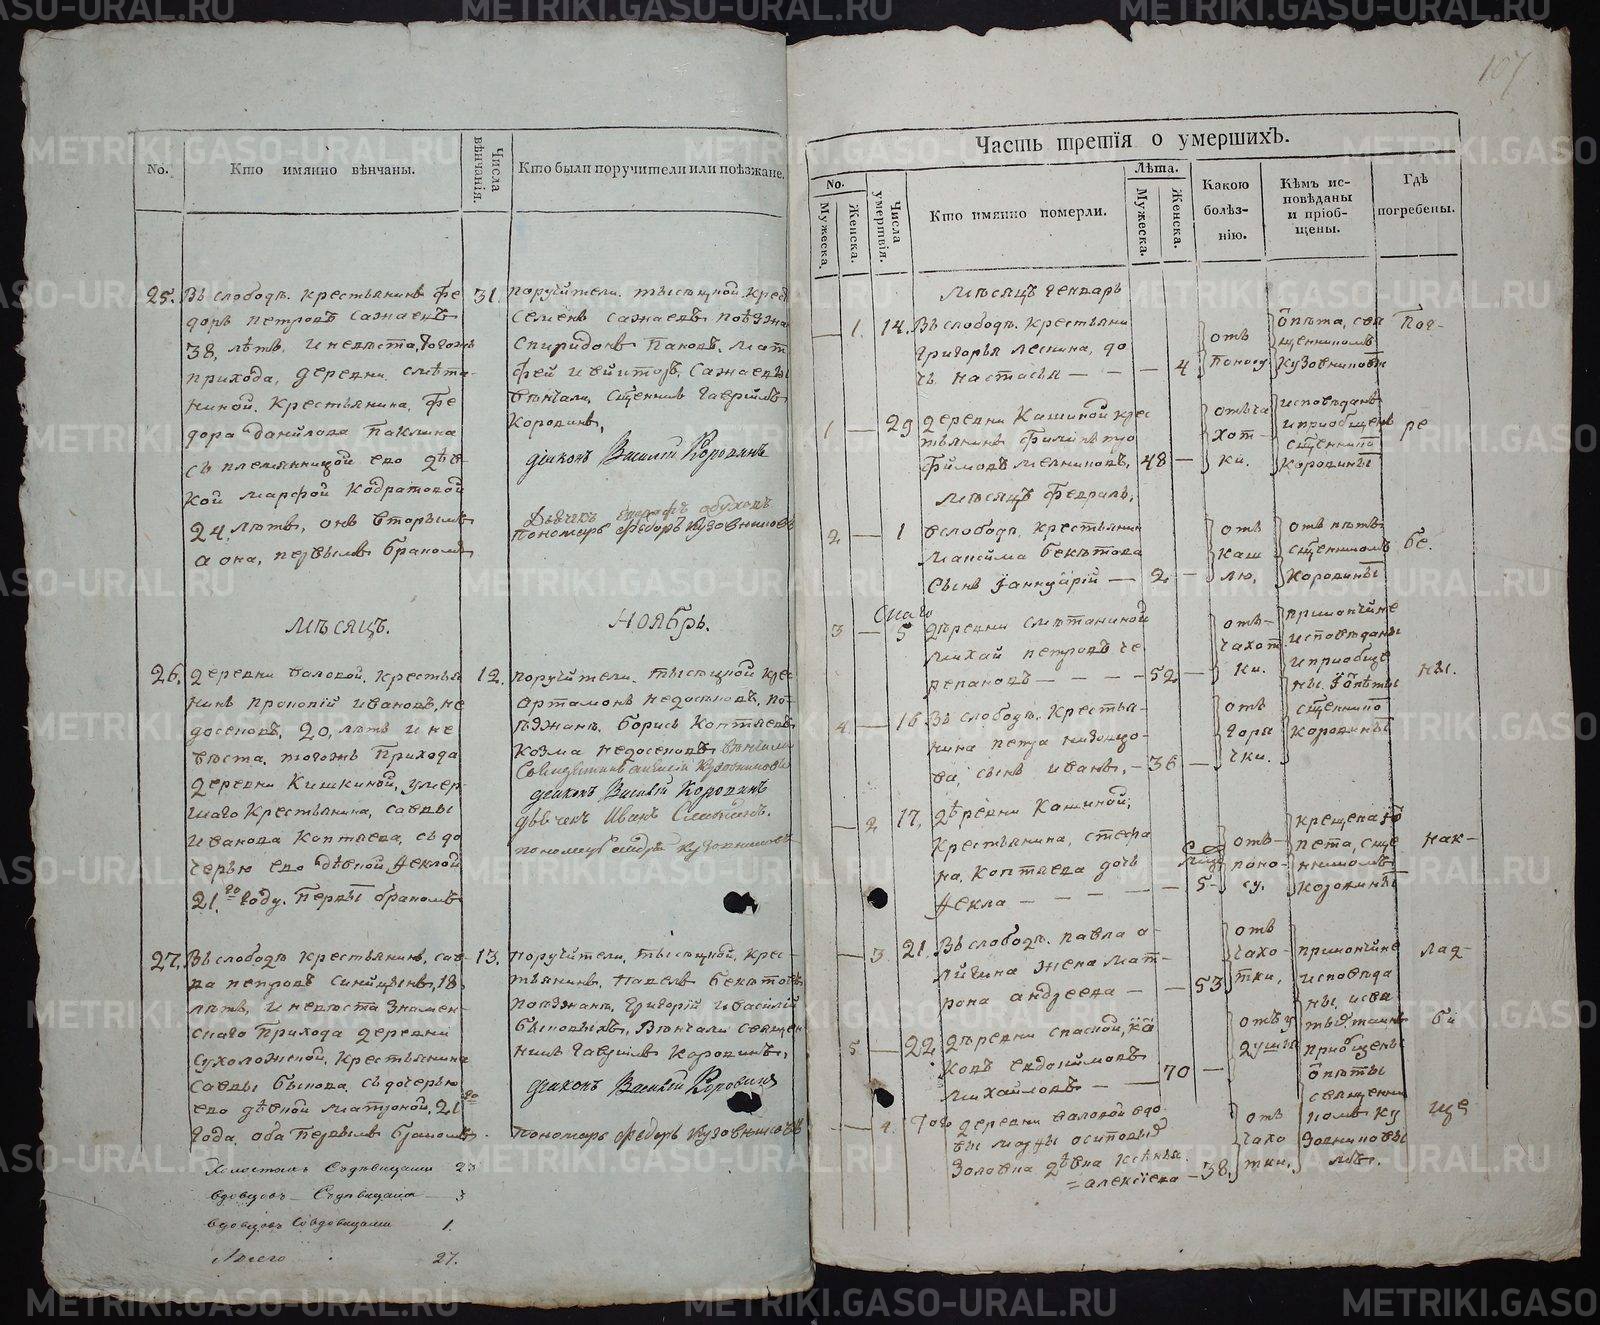 No.
Кто имянно вѣнчаны.
Числа вѣнчанія.
Кто были поручители или поѣзжане.
25.
Въ слободѣ. крестьянинъ Ѳе
доръ петровъ сажаевъ
38, лѣтъ, и невѣста, тогожъ
прихода, деревни смѣта-
ниной. крестьянина, Ѳе
дора данилова паклина
съ племянницой его дѣв
кой марфой кодратовой
24, лѣтъ, онъ вторымъ
а она, первымъ бракомъ
31.
поручители. тысяцкой. крес
семенъ сажаевъ поѣзжа
спиридонъ пановъ. мат
фей и викторъ, сажаевы
вѣнчали, сщенникъ гавріилъ
Коровинъ,
діаконъ Василій Коровинъ
Дьячекъ обуховъ
пономарь Ѳедоръ Кузовниковъ
мѣсяцъ.
ноябрь.
26.
деревни валовой. крестья
нинъ прокопій ивановъ, не
досековъ, 20, лѣтъ и не
вѣста, тогожъ прихода
деревни Кишкиной, умер
шаго крестьянина, савы
иванова коптяева, съ до
черью его дѣвкой Ѳеклой
21.го году. первы бракомъ
12.
поручители. тысяцкой крес
артамонъ недосековъ, по-
ѣзжанъ. борисъ коптяевъ
козма недосековъ вѣнчали
Священникъ Кузовниковъ
діаконъ Василій Коровинъ
дьячекъ Иванъ
пономарь Ѳедоръ кузовниковъ
27.
Въ слободѣ крестьянинъ, сав
ва петровъ синицынъ, 18
лѣтъ, и невѣста знамен-
скаго прихода деревни
сухоложской, крестьянина
савы быкова, съ дочерью
его дѣвкой матроной, 21го
года, оба первымъ бракомъ.
13.
поручители. тысяцкой, крес-
тьянинъ, павелъ бекетовъ
поѣзжанъ, григорій и василій
быковыхъ, вѣнчали священ
никъ гавріилъ коровинъ,
діаконъ Василій Коровинъ
пономарь Ѳедоръ кузовниковъ
Холостыхъ Содѣвицами 23
вдовцовъ — Содѣвицами — 3
вдовцовъ Совдовицами 1.
Всего 27.
107
Часть третія о умершихъ.
No.
Мужеска.
Женска.
Числа умертвія.
Кто имянно померли.
Лѣта.
Мужеска.
Женска.
Какою болѣз-нію.
Кѣмъ ис-повѣданы и пріоб-щены.
Гдѣ погребены.
мѣсяцъ генварь
— 1. 14. Въ слободѣ. крестьяни
григорья ленина, до
чь настасья — — — 4
отъ
поносу
опѣта, свя
щенникомъ
Кузовниковы
Пог-
1 — 29 деревни Кашиной крес
тьянинъ филипъ тро
фимовъ мелниковъ, 48 —
отъ ча
хот-
ки.
исповѣданъ
и приобщенъ
сщенникo
коровины
ре
мѣсяцъ февраль,
2 — 1 вслободѣ, крестьянин
максима бекетова
сынъ іаннуарій — 2 —
отъ
каш
лю,
отъ пѣтъ
сщенникомъ
коровины
бе.
3 — 5 деревни смѣтаниной
михай петровъ че
репановъ — — — 52 —
отъ-
чахот
ки.
прикончине
исповѣданы
и приобще
ны. ӥ опѣты
сщеннико
коровины
ны.
4 — 16 Въ слободѣ. крестья-
нина петра
ва, сынъ иванъ, — 36 —
отъ
горя
чки.
— 2 17, дѣревни кашиной,
крестьянина, стефа
на, коптяева дочь
Ѳекла — — — — 5-
отъ-
поно-
су.
крещена ӥ о
пета, сще
никомъ
коровины
нак-
— 3. 21. Въ слободѣ. павла а-
личина жена мат-
рона андреева — — 53
отъ
чахо-
тки,
прикончине
исповѣда
ны, исвя
тыхтаинъ
приобщены
опѣты
священни
комъ ку
зовниковы
мъ.
лад-
5 — 22 дѣревни спаской, іа
ковъ евдокимовъ
михайловъ — — 70 —
отъ у
душья
би
— 4. того деревни валовой вдо
вы марфы осиповы
золовка дѣвка ксѣнья
=алексіева — 38,
отъ
чахо
тки,
ще